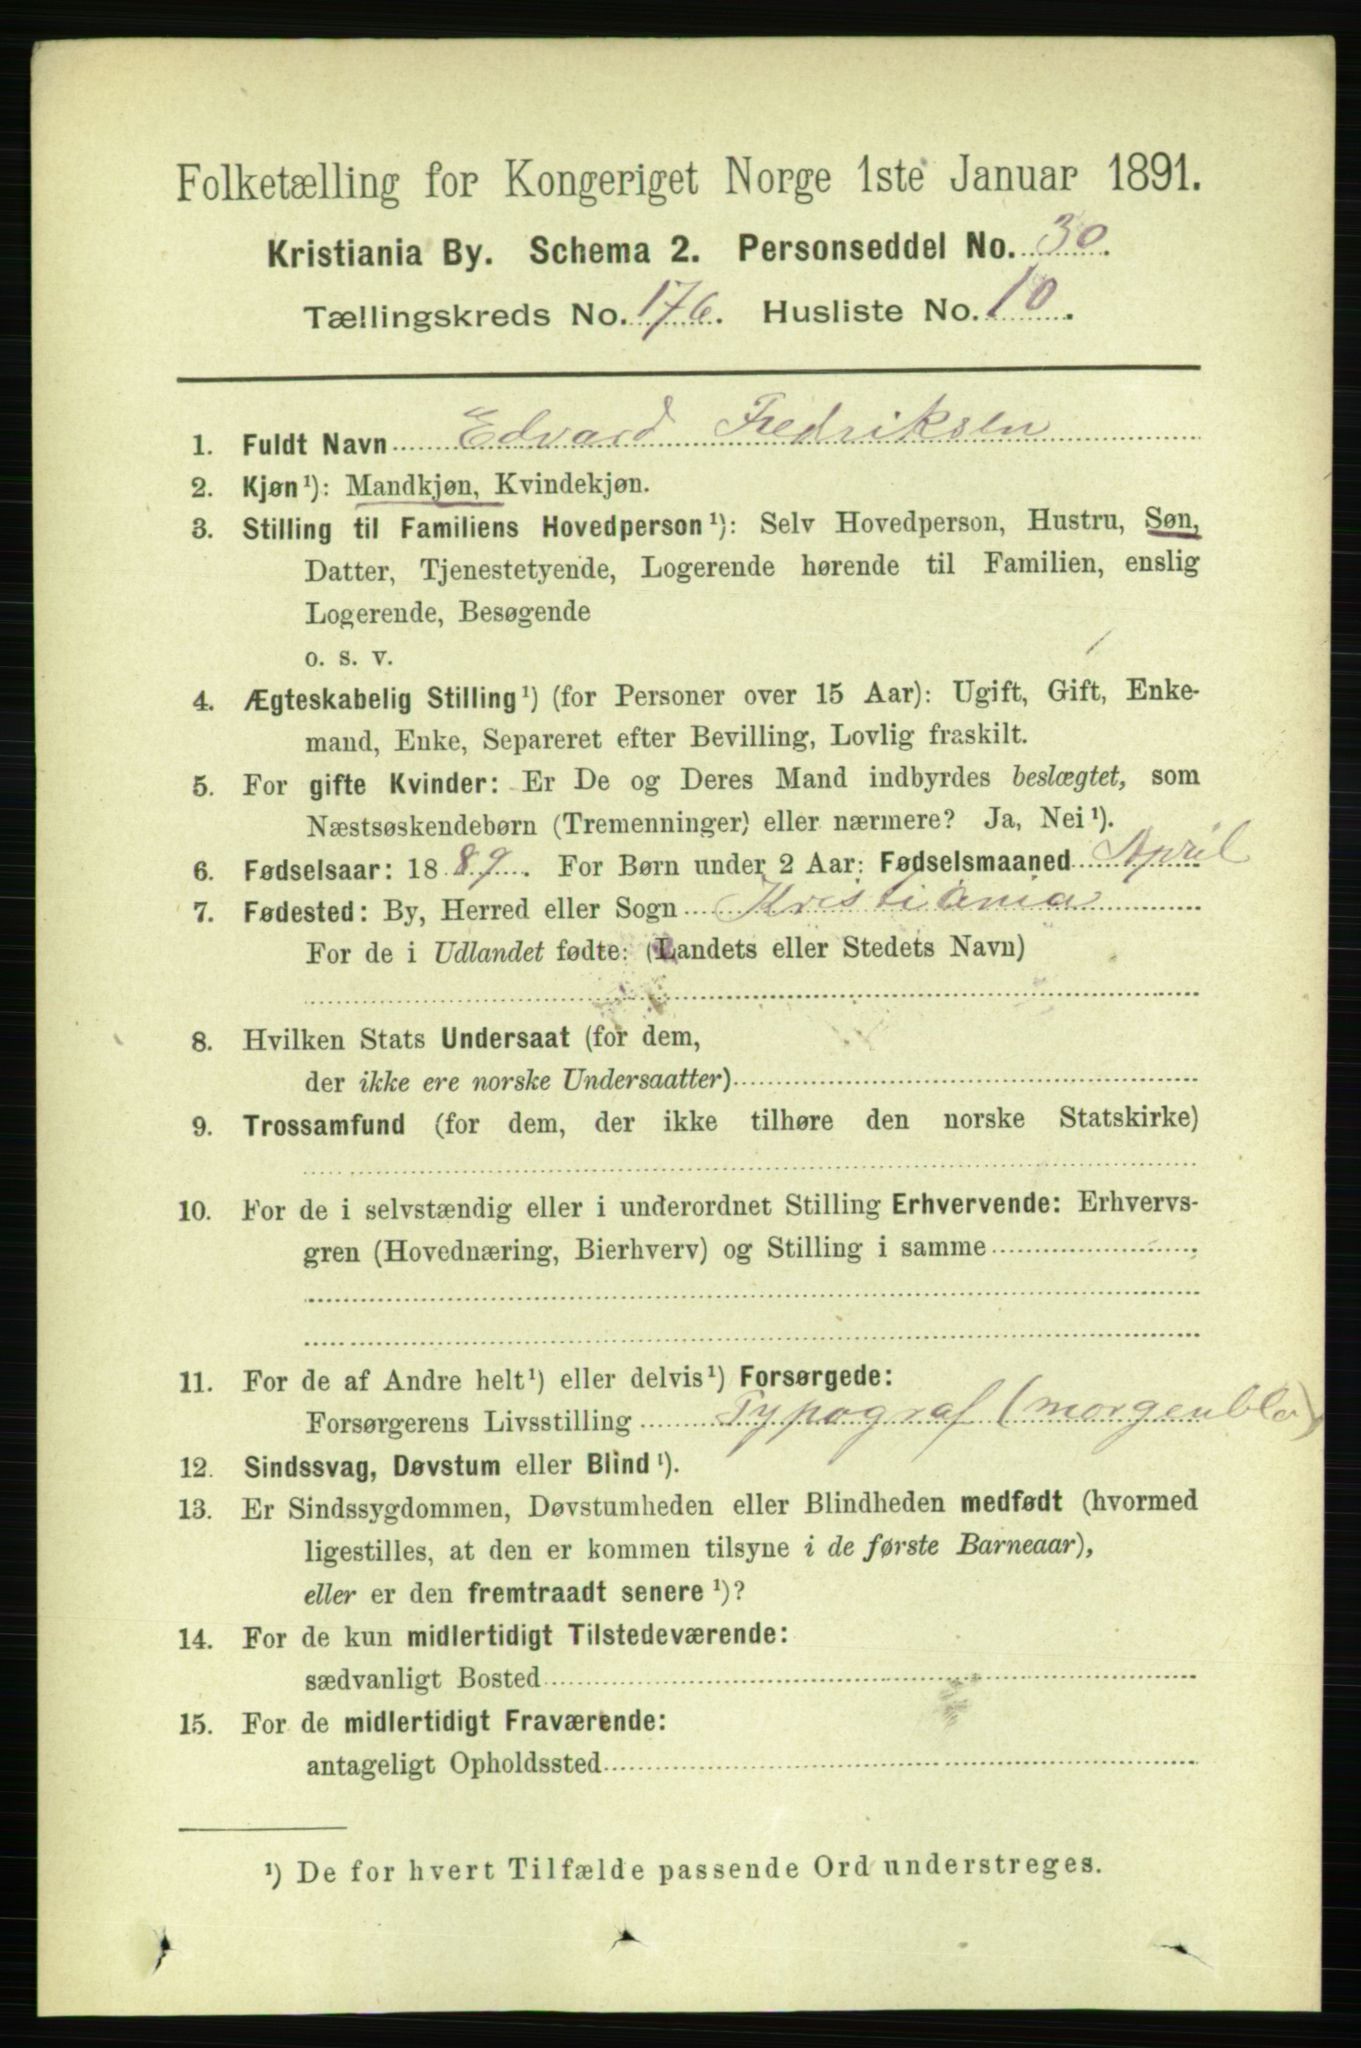 Folketælling for Kongeriget Norge 1ste Januar 1891.
Kristiania By. Schema 2. Personseddel No. 30.
Tællingskreds No. 176. Husliste No. 10.
1. Fuldt Navn Edvard Fredriksen
2. Kjøn¹): Mandkjøn, Kvindekjøn.
3. Stilling til Familiens Hovedperson¹): Selv Hovedperson, Hustru, Søn,
Datter, Tjenestetyende, Logerende hørende til Familien, enslig
Logerende, Besøgende
o. s. v.
4. Ægteskabelig Stilling¹) (for Personer over 15 Aar): Ugift, Gift, Enke-
mand, Enke, Separeret efter Bevilling, Lovlig fraskilt.
5. For gifte Kvinder: Er De og Deres Mand indbyrdes beslægtet, som
Næstsøskendebørn (Tremenninger) eller nærmere? Ja, Nei¹).
6. Fødselsaar: 1889. For Børn under 2 Aar: Fødselsmaaned April
7. Fødested: By, Herred eller Sogn Kristiania
For de i Udlandet fødte: (Landets eller Stedets Navn)
8. Hvilken Stats Undersaat (for dem,
der ikke ere norske Undersaatter)
9. Trossamfund (for dem, der ikke tilhøre den norske Statskirke)
10. For de i selvstændig eller i underordnet Stilling Erhvervende: Erhvervs-
gren (Hovednæring, Bierhverv) og Stilling i samme
11. For de af Andre helt¹) eller delvis¹) Forsørgede:
Forsørgerens Livsstilling Typograf (morgenbla)
12. Sindssvag, Døvstum eller Blind¹).
13. Er Sindssygdommen, Døvstumheden eller Blindheden medfødt (hvormed
ligestilles, at den er kommen tilsyne i de første Barneaar),
eller er den fremtraadt senere¹)?
14. For de kun midlertidigt Tilstedeværende:
sædvanligt Bosted
15. For de midlertidigt Fraværende:
antageligt Opholdssted
¹) De for hvert Tilfælde passende Ord understreges.